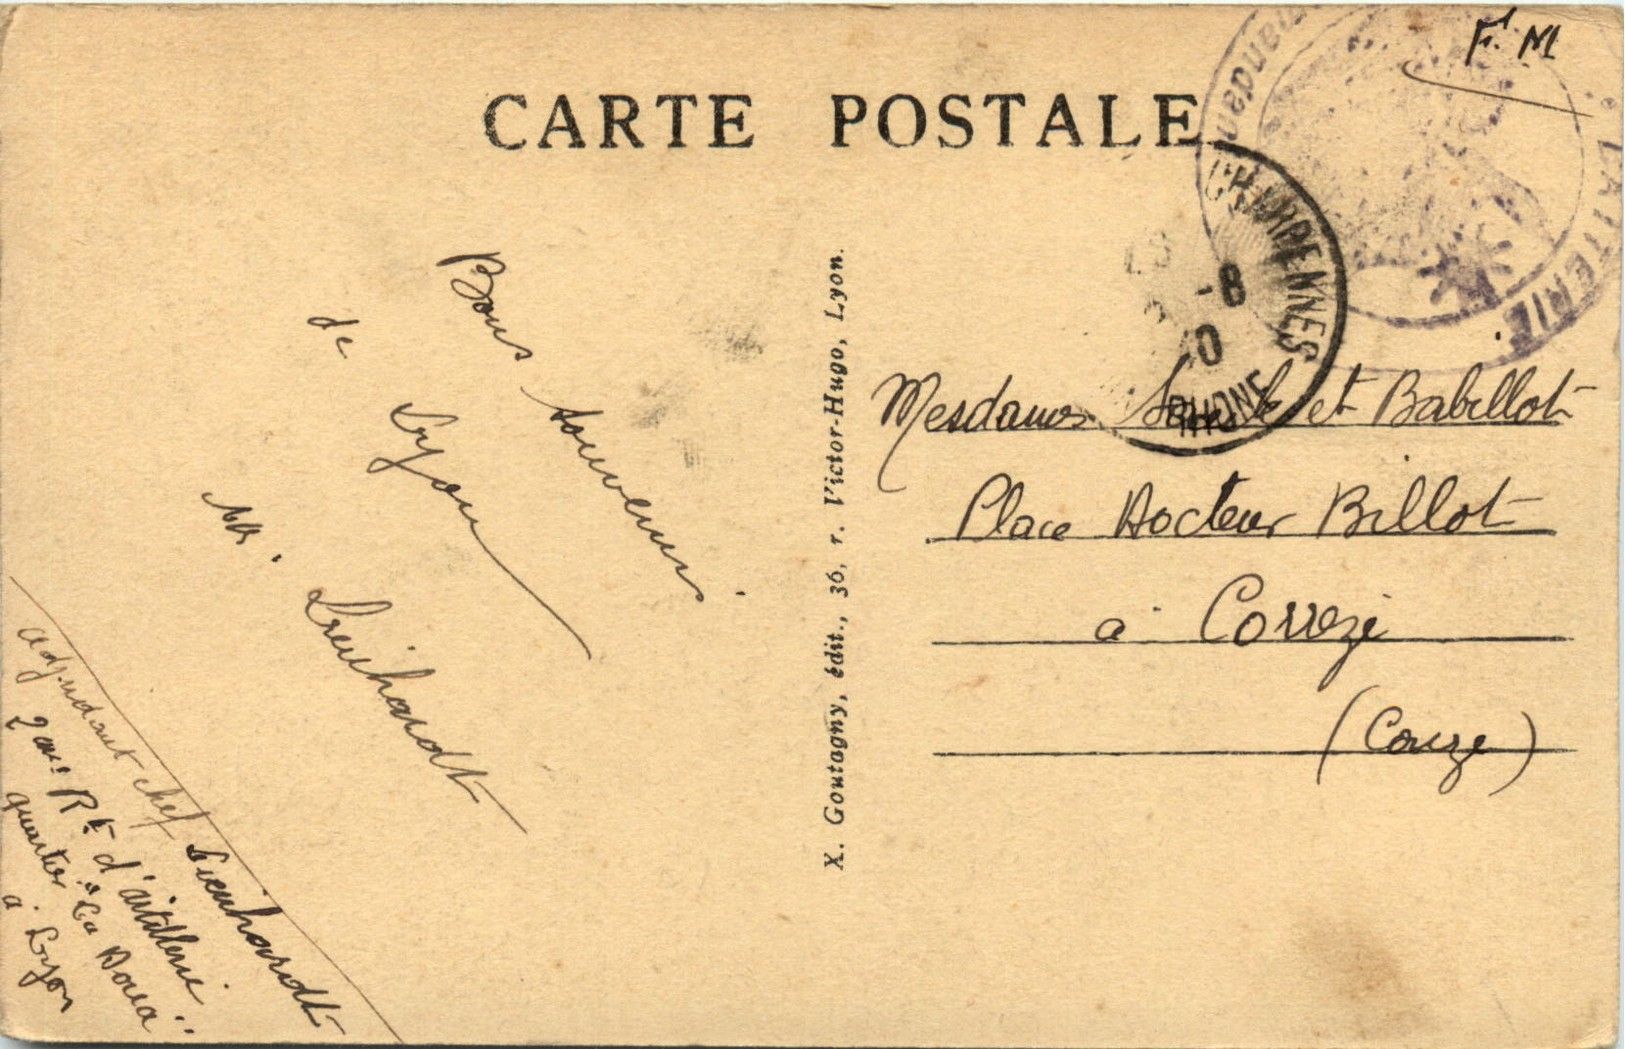 CARTE POSTALE
F. M
CHARPENNES
-8
0
RHONE
BATTERIE
Bons souvenirs
de
Lyon
M. Lienhardt
adjudant chef Lienhardt
2ème Rt d'artillerie
quartier "La Doua"
à Lyon
X. Goutagny, édit., 36, r. Victor-Hugo, Lyon.
Mesdames et Babillot
Place Docteur Billot
à Corrèze
(Corrèze)